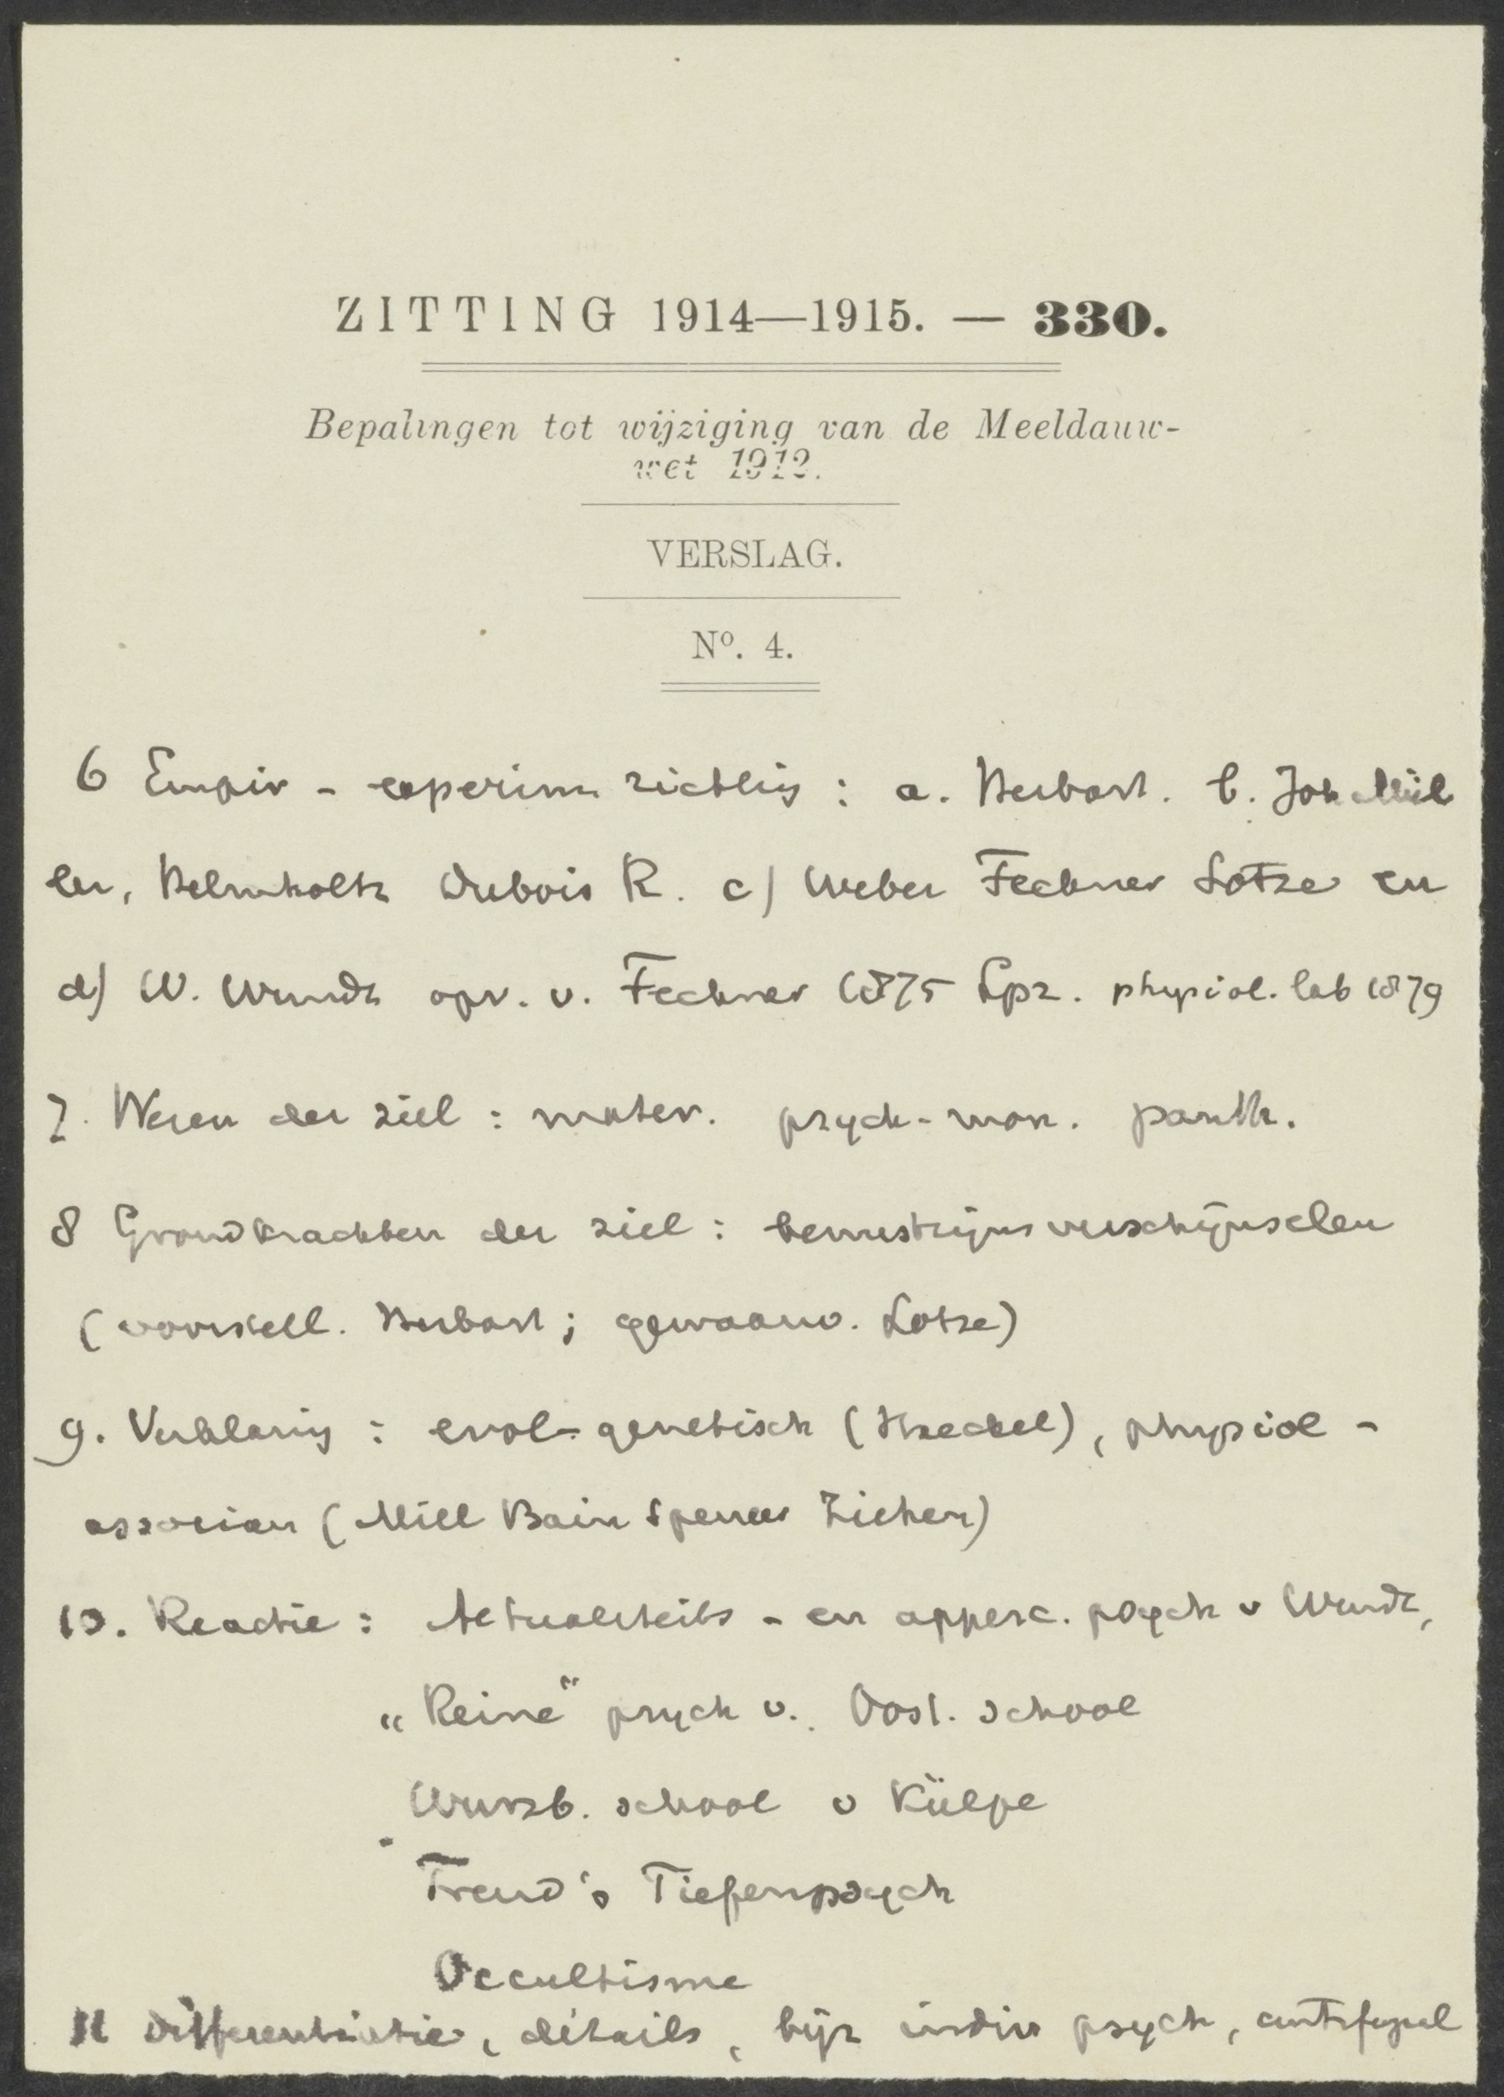 ZITTING 1914—1915. — 330.
Bepalingen tot wijziging van de Meeldauw-
wet 1912.
VERSLAG.
Nº. 4.
6 Empir - experim richting : a. Herbart. b. Joh Mül
ler, Helmholtz Dubois R. c) Weber Fechner Lotze en
d) W. Wundt opv. v. Fechner 1875 Lpz. physiol. lab 1879
7. Wezen der ziel : mater. psych-mon. panth.
8 Grondkrachten der ziel : bewustzijnsverschijnselen
(voorstell. Herbart; gewaarw. Lotze)
9. Verklaring : evol-genetisch (Haeckel), physiol -
associan (Mill Bain Spencer Ziehen)
10. Reactie : Actualiteits - en apperc. psych v Wundt,
„Reine" psych v. Oost. school
Wurzb. school v Külpe
Freud's Tiefenpsych
Occultisme
11 Differentiatie, détails, bijz indiv psych,